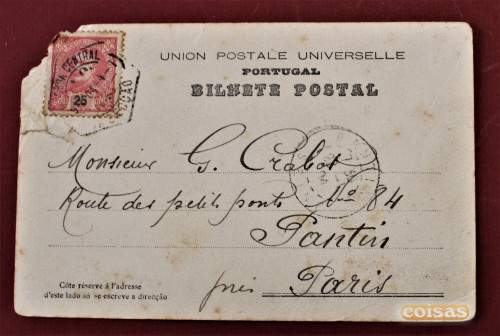 UNION POSTALE UNIVERSELLE
PORTUGAL
BILHETE POSTAL
CENTRAL
25
Monsieur G. Crabos
Route des petits ponts No 84
Pantin
près Paris
Côte réservé à l'adresse
d'este lado só se escreve a direcção
coisas